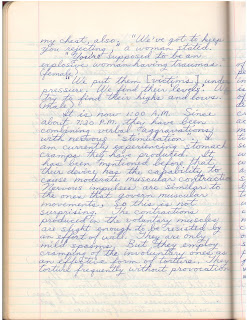 my chest, also. "We've got to keep
you rejecting," a woman stated.
"You're supposed to be an
explosive woman having traumas."
(female)
"We put them [victims] under
pressure. We find their levels. We
try to find their highs and lows."
(male)
It is now 11:00 A.M. Since
about 7:30 A.M. they have been
combining verbal "aggravations"
with physical "stimulation." I
am currently experiencing stomach
cramps they have produced. It
has been mentioned before that
their device has the capability to
cause moderate muscular contractions.
Nervous impulses are similar to
the ones that govern muscular
movements, so this is not
surprising. The contractions
produced in the voluntary muscles
are slight enough to be resisted by
an effort of will. They are only
mild spasms. But they employ
cramping of the involuntary ones as
an effective form of torture. They
torture frequently without provocation